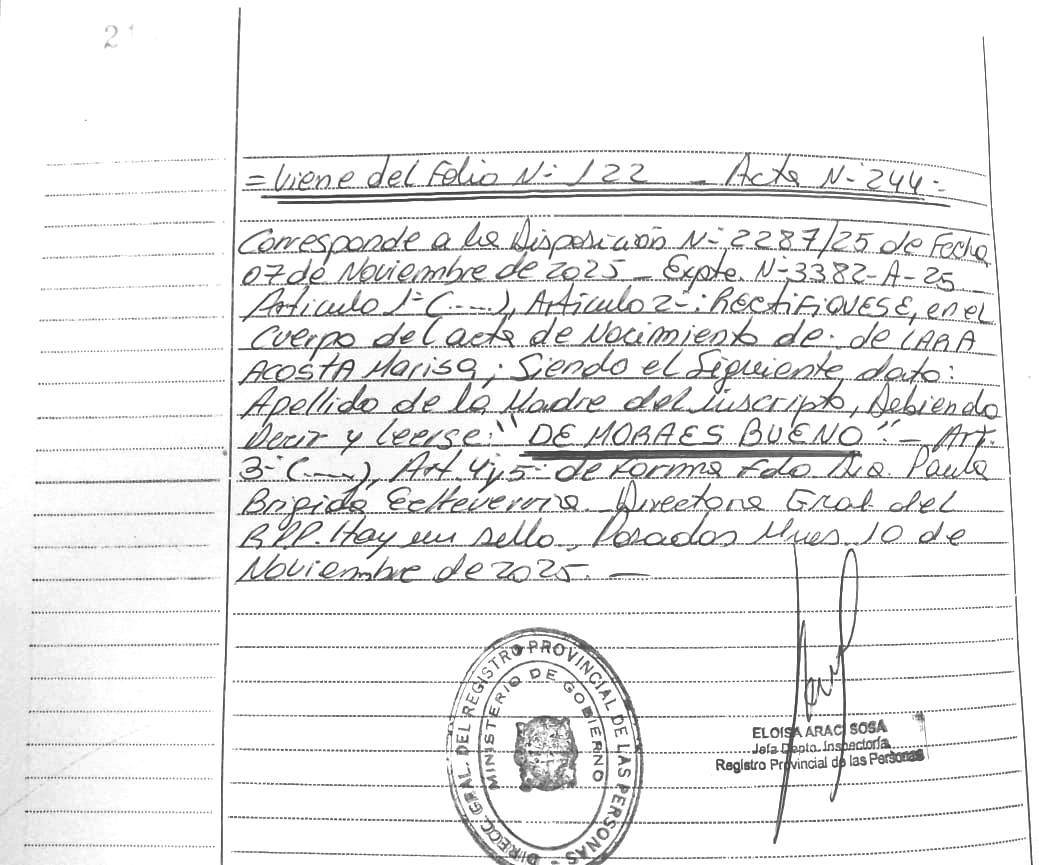 = Viene del Folio N- 122 - Acta N- 244-
Corresponde a la Disposición N- 2287/25 de Fecha
07 de Noviembre de 2025 - Expte. N- 3382-A-25
Artículo 1- (----), Artículo 2-: RECTIFIQUESE, en el
Cuerpo del acta de Nacimiento de: de LARA
ACOSTA Marisa; Siendo el Siguiente dato:
Apellido de la Madre del inscripto, Debiendo
Decir y leerse: "DE MORAES BUENO". - Art.
3- (----), Art. 4 y 5- de forma Fdo Dra. Paula
Brigida Echeverria. Directora Gral del
RPP. Hay un sello, Posadas Mnes. 10 de
Noviembre de 2025. —
DIRECC. GRAL. DEL REGISTRO PROVINCIAL DE LAS PERSONAS -
MINISTERIO DE GOBIERNO
ELOISA ARACI SOSA
Jefa Depto. Inspectoría
Registro Provincial de las Personas